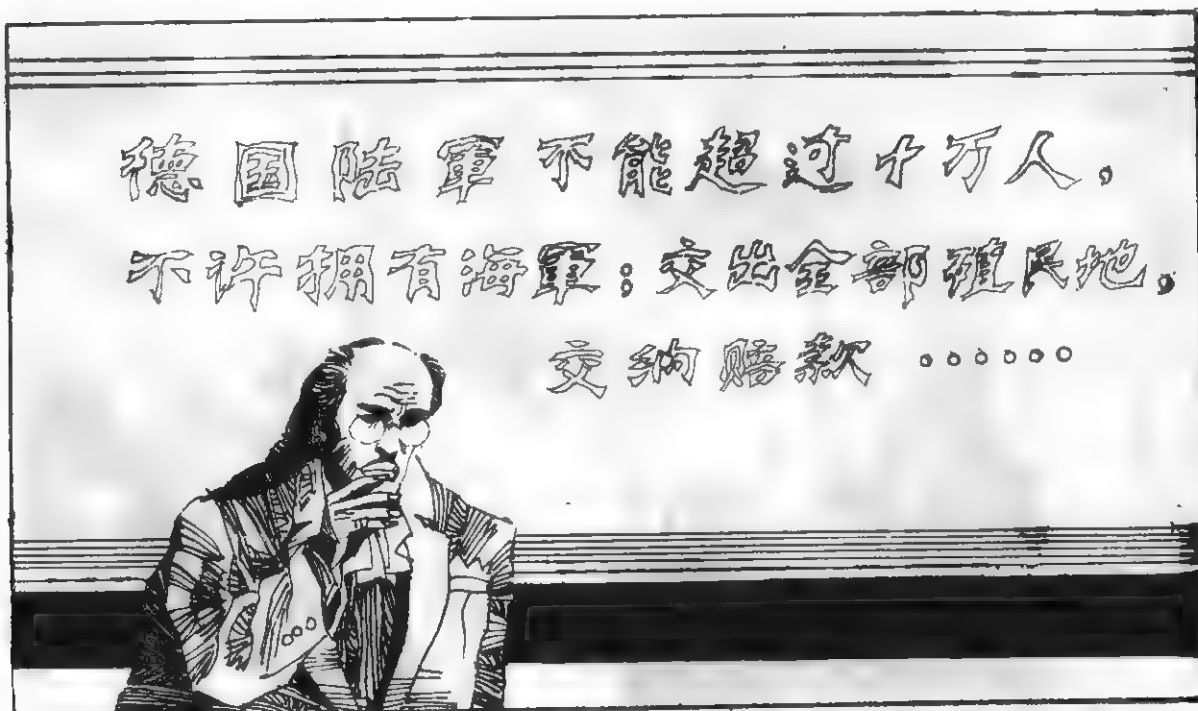 德国陆軍不能超过十万人，
不许拥有海軍；交出全部殖民地，
交纳赔款……